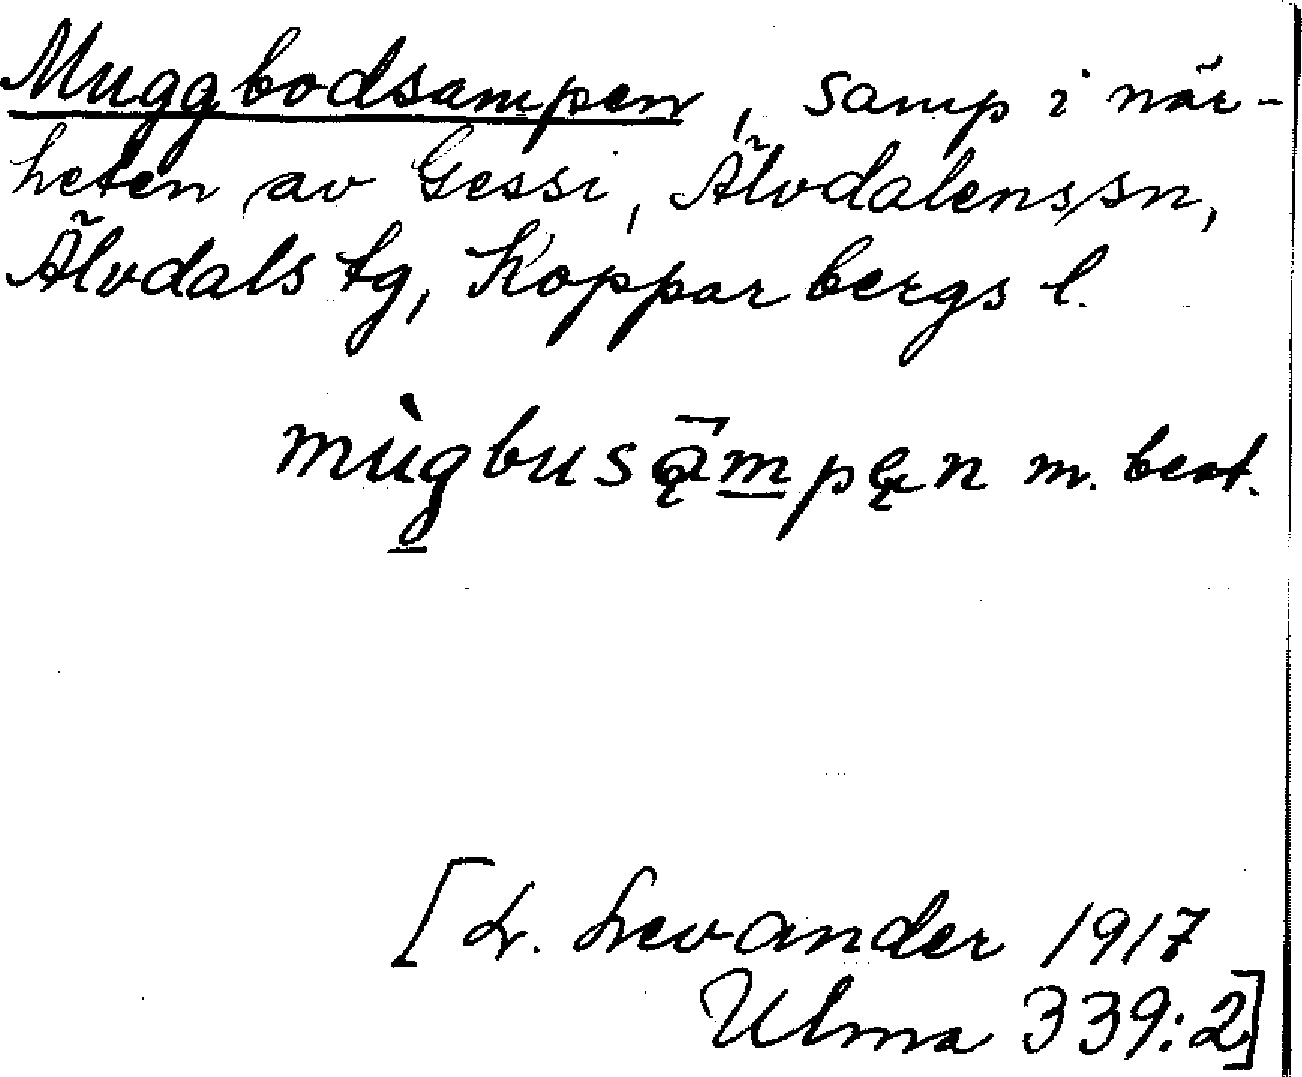 Muggbodsampen, samp i när-
heten av Gessi, Älvdalens sn,
Älvdals tg, Kopparbergs l.
mùgbusą̄mpęn m. best.
[L. Levander 1917
Ulma 339:2]